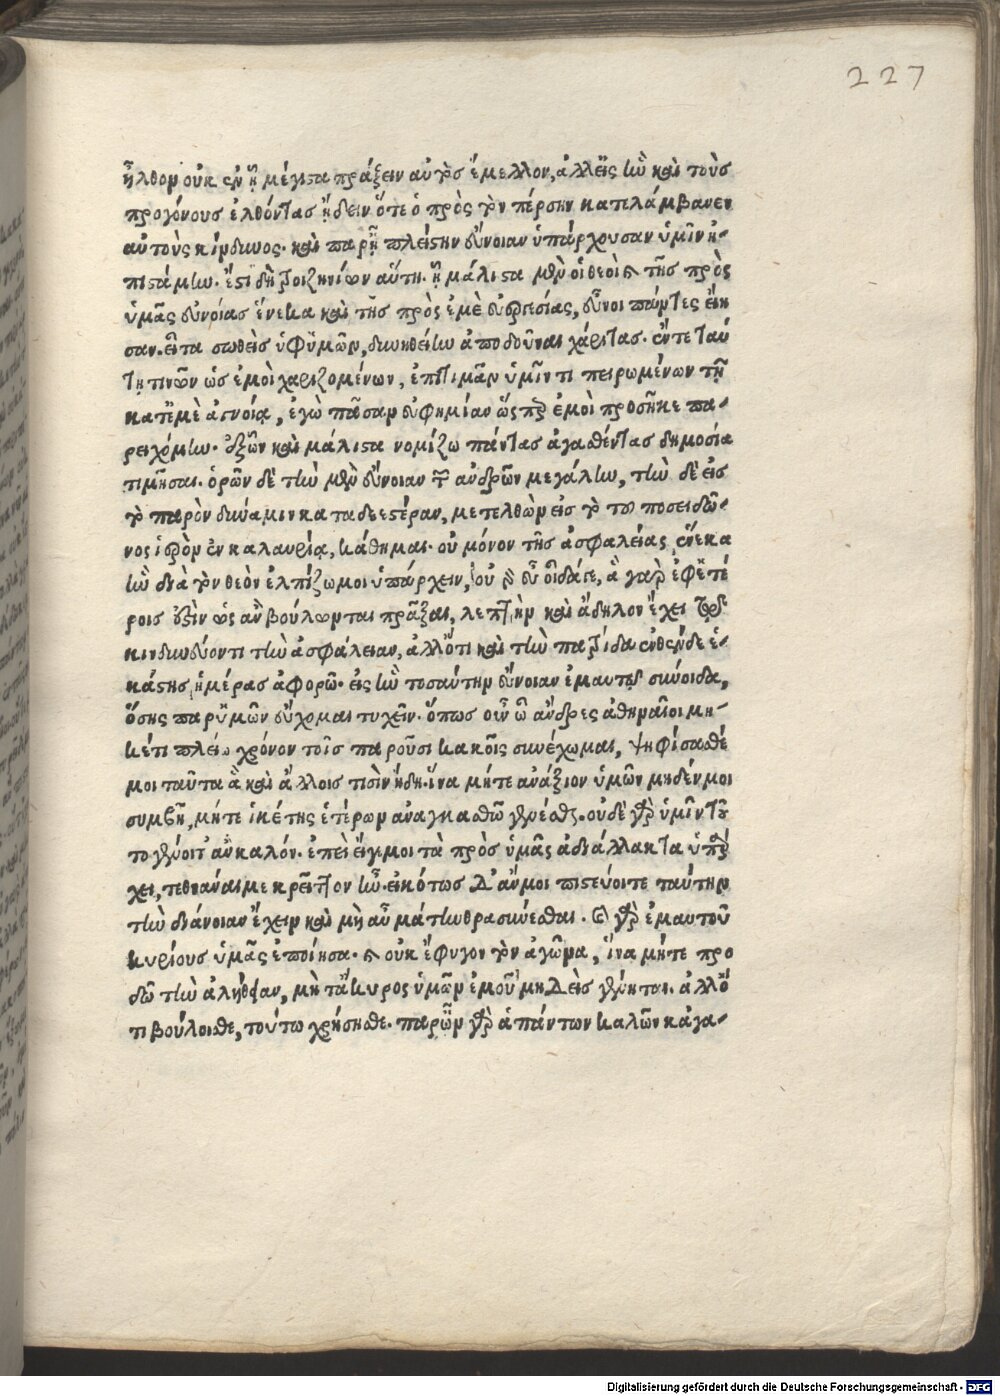 227
ἦλθον οὐκ ἐν ᾗ μέγιστα πράξειν αὐτὸς ἔμελλον, ἀλλ' εἰς ἣν καὶ τοὺς
προγόνους ἐλθόντας ᾔδειν ὅτε ὁ πρὸς τὸν πέρσην κατελάμβανεν
αὐτοὺς κίνδυνος. καὶ παρ' ᾗ πλείστην εὔνοιαν ὑπάρχουσαν ὑμῖν ἠ-
πιστάμην. ἔστι δὴ τροιζηνίων αὕτη. ᾗ μάλιστα μὲν οἱ θεοὶ καὶ τῆς πρὸς
ὑμᾶς εὐνοίας ἕνεκα καὶ τῆς πρὸς ἐμὲ εὐεργεσίας, εὖνοι πάντες εἴη
σαν. εἶτα σωθεὶς ὑφ' ὑμῶν, δυνηθείην ἀποδοῦναι χάριτας. ἔν τε ταύ
τῃ τινῶν ὡς ἐμοὶ χαριζομένων, ἐπιτιμᾶν ὑμῖν τι πειρωμένων τῇ
κατ' ἐμὲ ἀγνοίᾳ, ἐγὼ πᾶσαν εὐφημίαν ὥσπερ ἐμοὶ προσῆκε πα-
ρειχόμην. ἐξ ὧν καὶ μάλιστα νομίζω πάντας ἀγασθέντας δημοσίᾳ
τιμῆσαι. ὁρῶν δὲ τὴν μὲν εὔνοιαν τῶν ἀνδρῶν μεγάλην, τὴν δὲ εἰς
τὸ παρὸν δύναμιν καταδεεστέραν, μετελθὼν εἰς τὸ τοῦ ποσειδῶ-
νος ἱερὸν ἐν καλαυρίᾳ, κάθημαι. οὐ μόνον τῆς ἀσφαλείας ἕνεκα
ἣν διὰ τὸν θεὸν ἐλπίζω μοι ὑπάρχειν, οὐ γὰρ εὖ οἶδά γε, ἃ γὰρ ἐφ' ἑτέ
ροις ἐστὶν ὡς ἂν βούλωνται πρᾶξαι, λεπτὴν καὶ ἄδηλον ἔχει τῷ
κινδυνεύοντι τὴν ἀσφάλειαν, ἀλλ' ὅτι καὶ τὴν πατρίδα ἐνθένδε ἑ-
κάστης ἡμέρας ἀφορῶ. εἰς ἣν τοσαύτην εὔνοιαν ἐμαυτῷ σύνοιδα,
ὅσης παρ' ὑμῶν εὔχομαι τυχεῖν. ὅπως οὖν ὦ ἄνδρες ἀθηναῖοι μη-
κέτι πλείω χρόνον τοῖς παροῦσι κακοῖς συνέχωμαι, ψηφίσασθέ
μοι ταῦτα ἃ καὶ ἄλλοις τισὶν ἤδη. ἵνα μήτε ἀνάξιον ὑμῶν μηδέν μοι
συμβῇ, μήτε ἱκέτης ἑτέρων ἀναγκασθῶ γενέσθαι. οὐδὲ γὰρ ὑμῖν τοῦ
το γένοιτ' ἂν καλόν. ἐπεὶ εἴγε μοι τὰ πρὸς ὑμᾶς ἀδιάλλακτα ὑπῆρ
χει, τεθνάναι με κρεῖττον ἦν. εἰκότως δ' ἄν μοι πιστεύοιτε ταύτην
τὴν διάνοιαν ἔχειν καὶ μὴ νῦν μάτην θρασύνεσθαι. καὶ γὰρ ἐμαυτοῦ
κυρίους ὑμᾶς ἐποίησα. καὶ οὐκ ἔφυγον τὸν ἀγῶνα, ἵνα μήτε προ
δῶ τὴν ἀλήθειαν, μήτε ἄκυρος ὑμῶν ἐμοῦ μηδεὶς γένηται. ἀλλ' ὅ
τι βούλοισθε, τούτῳ χρήσησθε. παρ' ὧν γὰρ ἁπάντων καλῶν κἀγα-
Digitalisierung gefördert durch die Deutsche Forschungsgemeinschaft - DFG